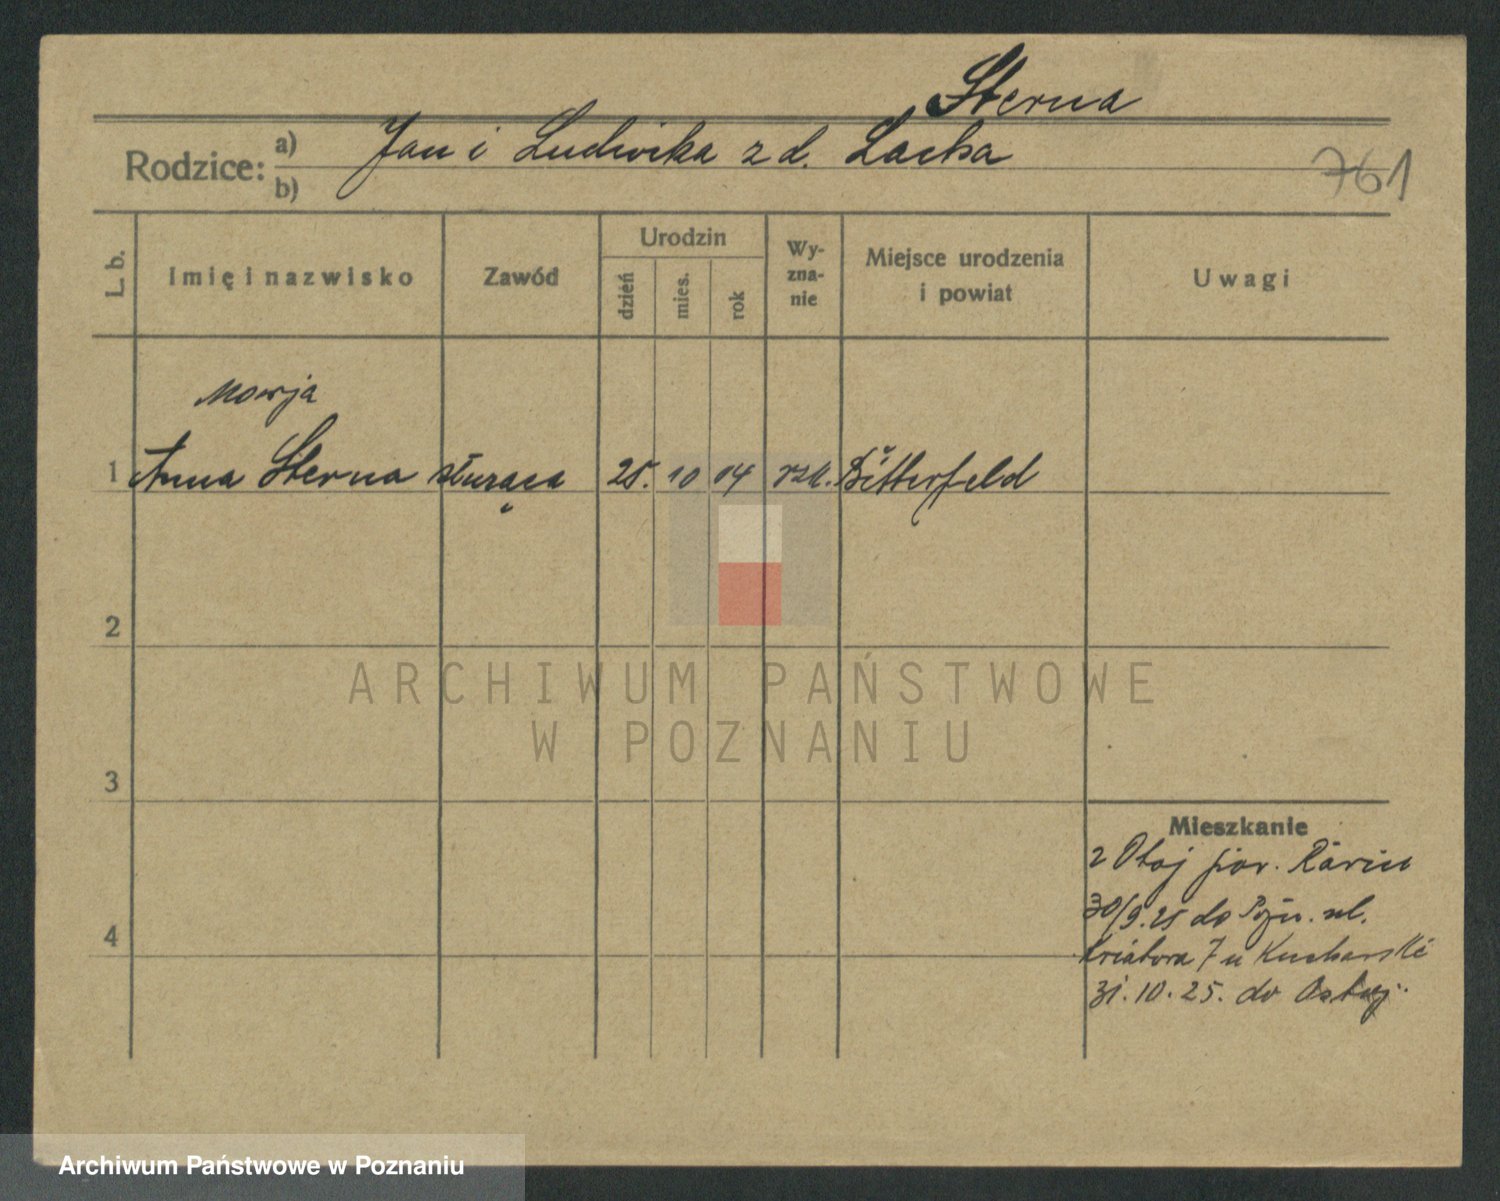 Sterna
Rodzice: a) Jan i Ludwika z d. Lacka
b)
761
L. b.
Imię i nazwisko
Zawód
Urodzin
dzień
mies.
rok
Wy-
zna-
nie
Miejsce urodzenia
i powiat
Uwagi
Marja
1 Anna Sterna służąca 25. 10 04 rzk. Bitterfeld
2
3
4
Mieszkanie
2
30/9.25 do Pozn. ul.
7 u Kucharski
31.10.25. do
ARCHIWUM PAŃSTWOWE
W POZNANIU
Archiwum Państwowe w Poznaniu